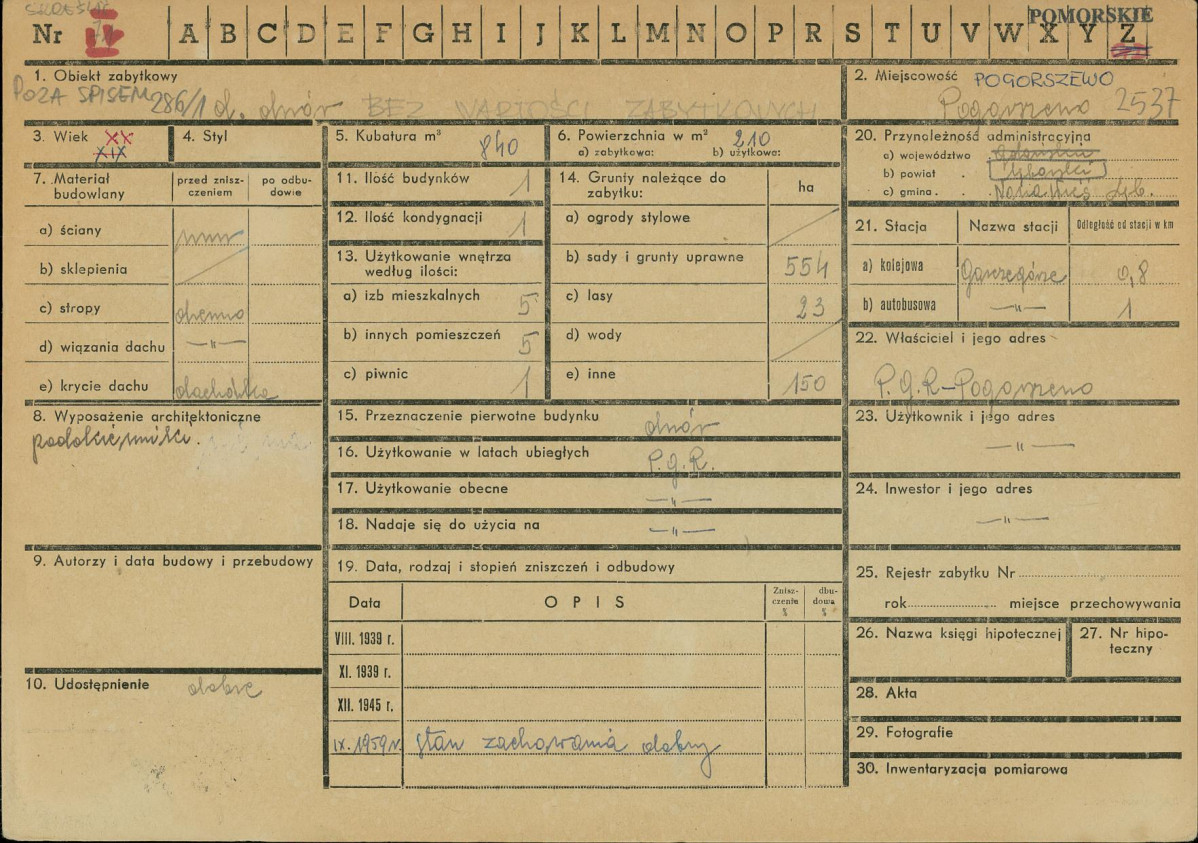 SKREŚLIĆ
POMORSKIE
Nr II A B C D E F G H I J K L M N O P R S T U V W X Y Z
1. Obiekt zabytkowy
POZA SPISEM 286/1 d. dwór BEZ WARTOŚCI ZABYTKOWYCH
2. Miejscowość POGORSZEWO
Pogorszewo 2537
3. Wiek XX
XIX
4. Styl
5. Kubatura m³ 840
6. Powierzchnia w m² 210
a) zabytkowa: b) użytkowa:
7. Materiał budowlany
przed znisz-
czeniem
po odbu-
dowie
a) ściany mur
b) sklepienia
c) stropy drewno
d) wiązania dachu —"—
e) krycie dachu dachówka
8. Wyposażenie architektoniczne
9. Autorzy i data budowy i przebudowy
10. Udostępnienie dobre
11. Ilość budynków 1
12. Ilość kondygnacji 1
13. Użytkowanie wnętrza
według ilości:
a) izb mieszkalnych 5
b) innych pomieszczeń 5
c) piwnic 1
14. Grunty należące do
zabytku: ha
a) ogrody stylowe
b) sady i grunty uprawne 554
c) lasy 23
d) wody
e) inne 150
15. Przeznaczenie pierwotne budynku dwór
16. Użytkowanie w latach ubiegłych P.G.R.
17. Użytkowanie obecne —"—
18. Nadaje się do użycia na —"—
19. Data, rodzaj i stopień zniszczeń i odbudowy
Data OPIS
Znisz-
czenia
%
dbu-
dowa
%
VIII. 1939 r.
XI. 1939 r.
XII. 1945 r.
IX. 1959 r. stan zachowania dobry
20. Przynależność administracyjna
a) województwo Gdańskie
b) powiat
c) gmina
21. Stacja Nazwa stacji Odległość od stacji w km
a) kolejowa Garczegórze 0,8
b) autobusowa —"— 1
22. Właściciel i jego adres
P.G.R – Pogorszewo
23. Użytkownik i jego adres
—"—
24. Inwestor i jego adres
—"—
25. Rejestr zabytku Nr
rok miejsce przechowywania
26. Nazwa księgi hipotecznej
27. Nr hipo-
teczny
28. Akta
29. Fotografie
30. Inwentaryzacja pomiarowa